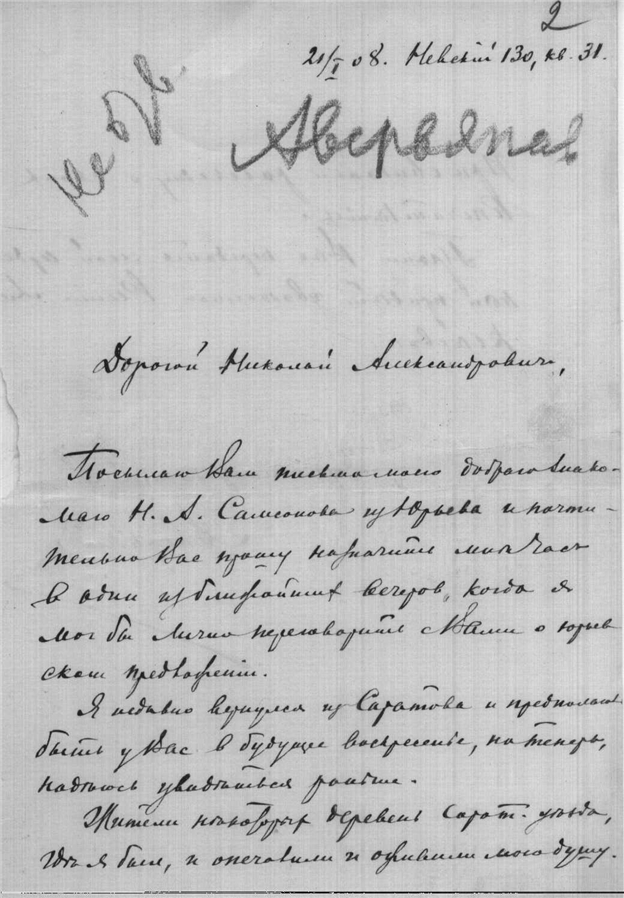 2
21/I 08. Невскій 130, кв. 31.
Аверьянов
Дорогой Николай Александровичъ,
Посылаю Вам письмо моего доброго знако-
маго Н. А. Самсонова из Юрьева и почти-
тельно Вас прошу назначить мнѣ час
в один из ближайших вечеров, когда я
мог бы лично переговорить с Вами о юрьев
ском предложеніи.
Я недавно вернулся из Саратова и предполагал
быть у Вас в будущее воскресенье, но теперь,
надѣюсь увидѣться раньше.
Жители нѣкоторых деревень Сарат. уѣзда,
гдѣ я был, и опечалили и оживили мою душу.